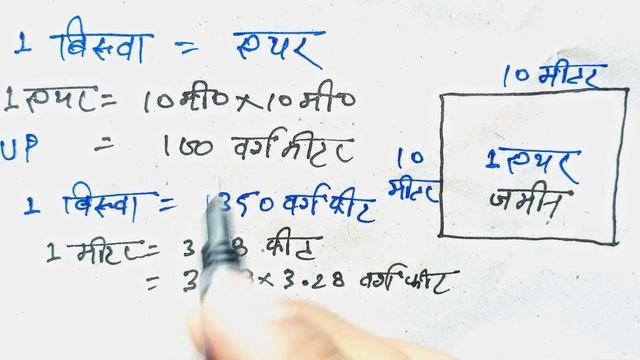 1 बिस्वा = एयर
1 एयर = 10 मी० × 10 मी०
UP = 100 वर्ग मीटर
1 बिस्वा = 1350 वर्ग फीट
1 मीटर = 3 8 फीट
= 3 × 3.28 वर्ग फीट
10 मीटर
10
मीटर
1 एयर
जमीन